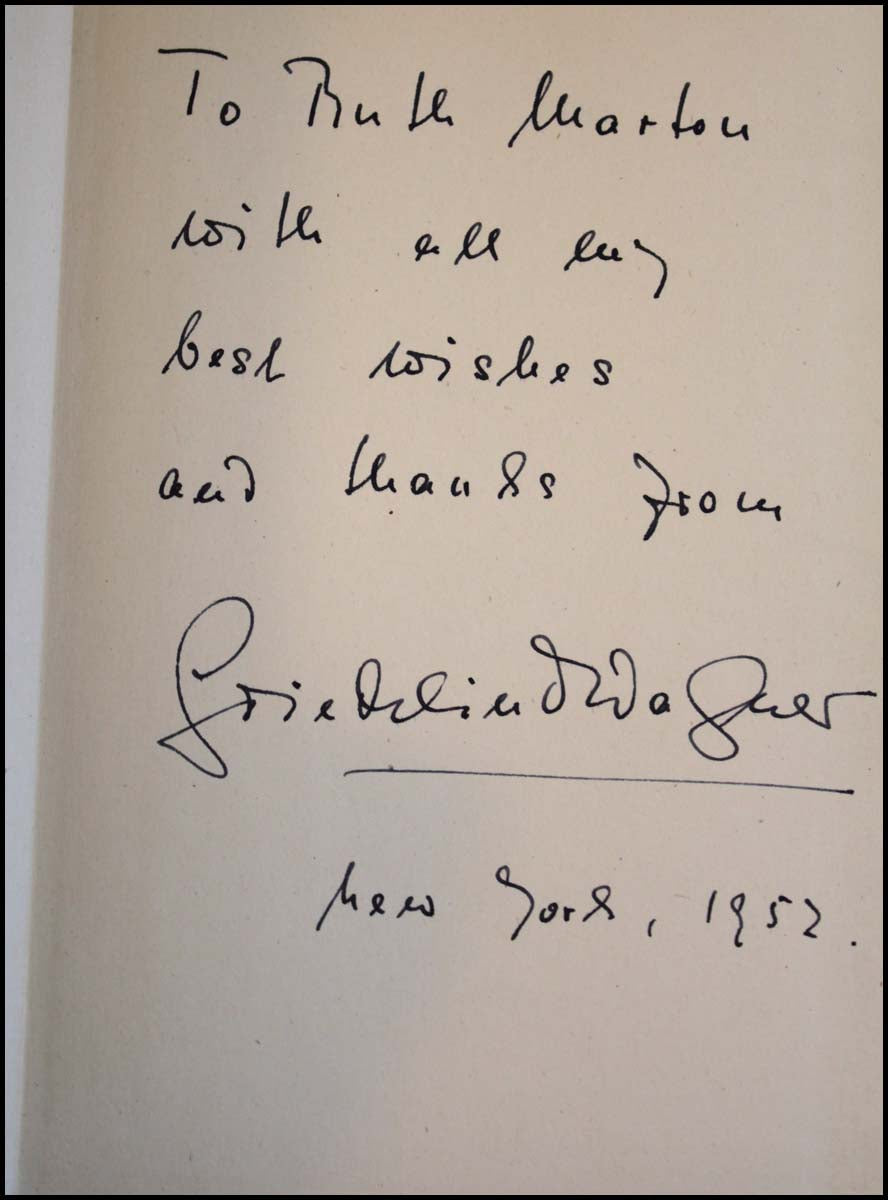 To Ruth Marton
with all my
best wishes
and thanks from
Friedelind Wagner
New York, 1952.